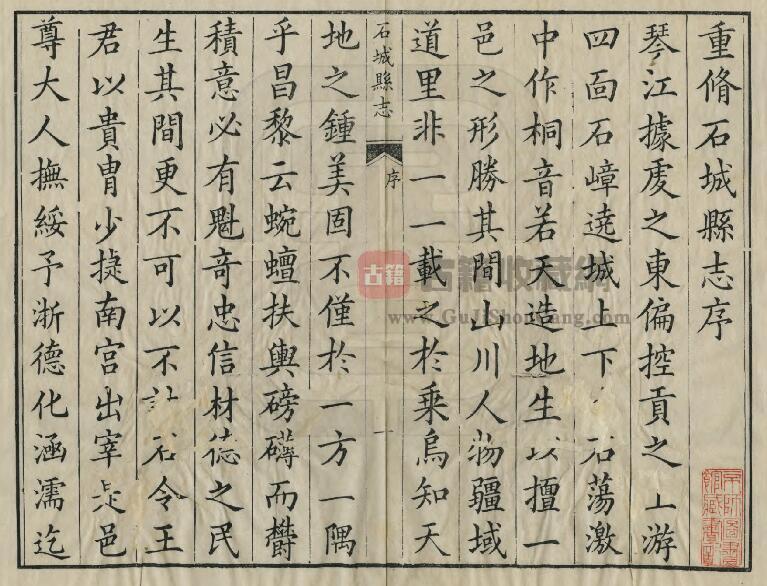 重脩石城縣志序
琴江據䖍之東偏控貢之上游
四面石嶂遶城上下石蕩激
中作桐音若天造地生以擅一
邑之形勝其間山川人物疆域
道里非一一載之於乘烏知天
石城縣志
序
一
地之鍾美固不僅於一方一隅
乎昌黎云蜿蟺扶輿磅礴而欝
積意必有魁奇忠信材德之民
生其間更不可以不誌石令王
君以貴胄少捷南宮出宰是邑
尊大人撫綏予漸德化涵濡迄
古籍
古籍收藏網
www.GuJiShouCang.com